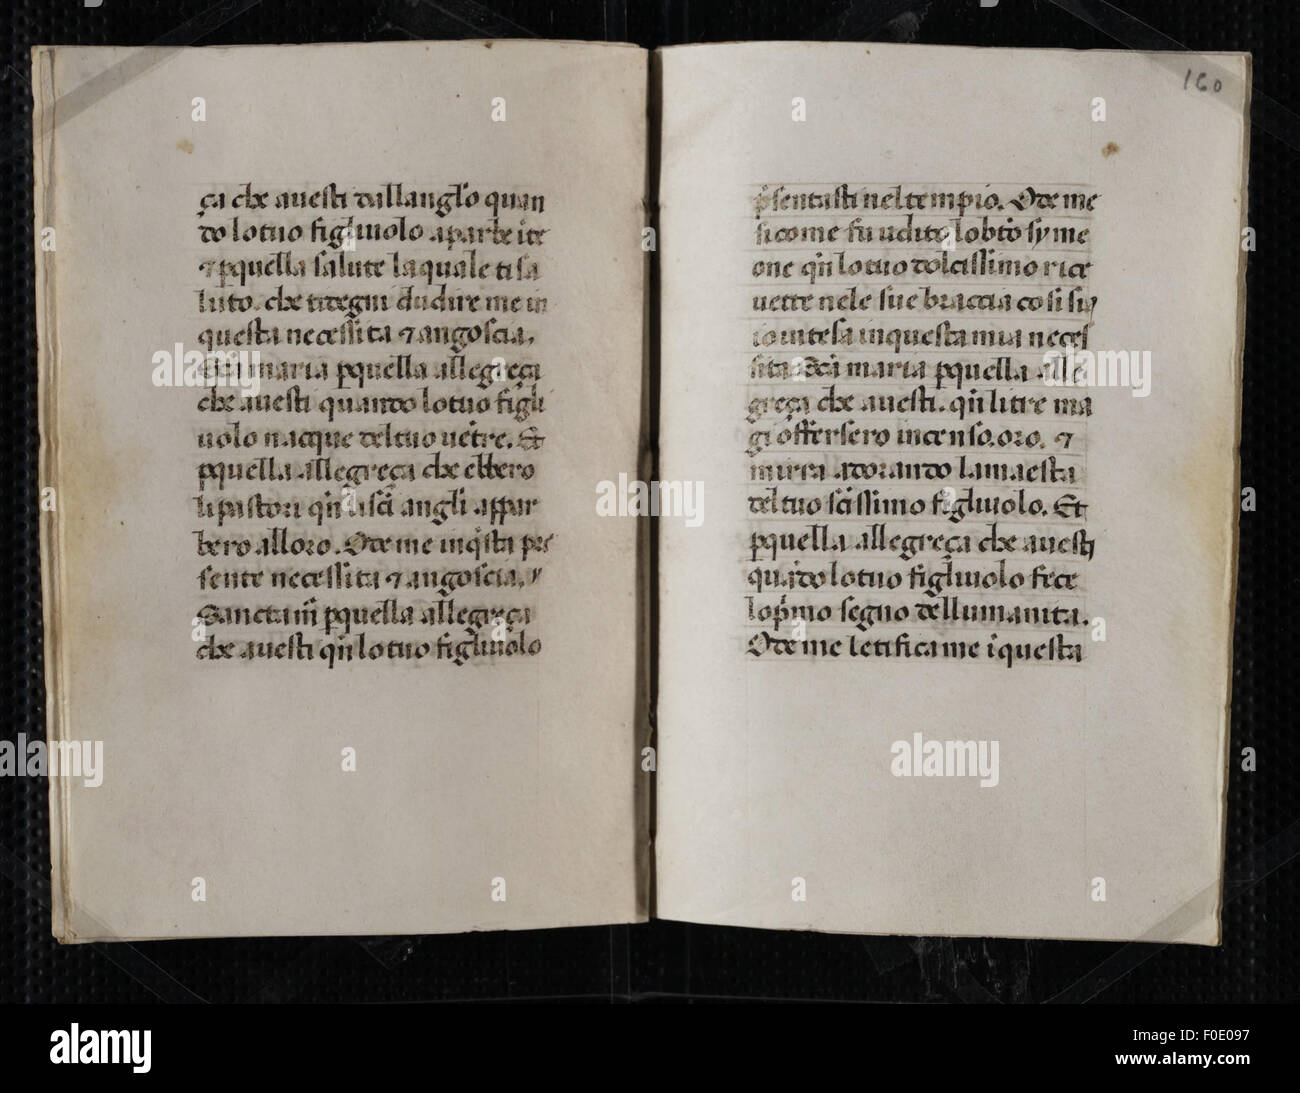 ça che auesti dallanglo quan
do lo tuo figliuolo aparbe i te
⁊ pquella salute la quale ti sa
luto. che ti degni dudire me in
questa necessita ⁊ angoscia.
Scā maria pquella allegreça
che auesti quando lo tuo figli
uolo nacque del tuo uētre. Et
pquella allegreça che ebbero
li pastori qñ li scī angli appar
bero alloro. Ode me inqsta pre
sente necessita ⁊ angoscia.
Sancta m̄ pquella allegreça
che auesti qñ lo tuo figliuolo
160
psentasti nel tempio. Ode me
si come fu udito lo bto syme
one qñ lo tuo dolcissimo rice
uette nele sue braccia cosi sy
io intesa in questa mia neces
sita. Scā maria pquella alle
greça che auesti. qñ li tre ma
gi offersero incenso. oro. ⁊
mirra adorando la maesta
del tuo scissimo figliuolo. Et
pquella allegreça che auesti
quādo lo tuo figliuolo fece
lo pmo segno dellumanita.
Ode me letifica me i questa
alamy
Image ID: F0E097
www.alamy.com